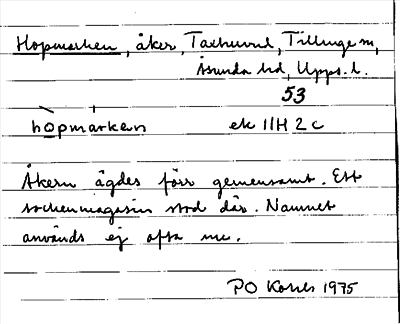 Hopmarken, åker, Taxhuvud, Tillinge sn,
Åsunda hd, Upps. l.
53
hopmarken ek 11H 2c
Åkern ägdes förr gemensamt. Ett
sockenmagasin stod där. Namnet
används ej ofta nu.
PO 1975